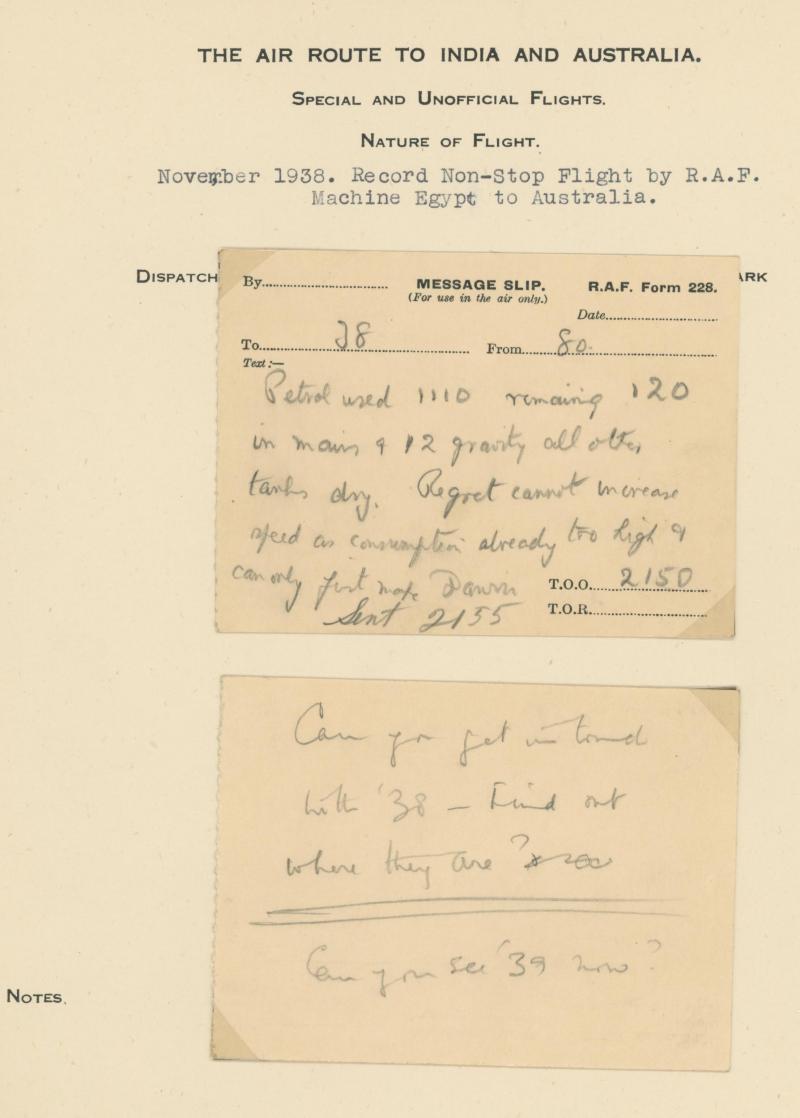 THE AIR ROUTE TO INDIA AND AUSTRALIA.
SPECIAL AND UNOFFICIAL FLIGHTS.
NATURE OF FLIGHT.
November 1938. Record Non-Stop Flight by R.A.F.
Machine Egypt to Australia.
DISPATCH
ARK
By
MESSAGE SLIP.
R.A.F. Form 228.
(For use in the air only.)
Date
To 38
From 80
Text:—
Petrol used 1110 remaining 120
in mains & 12 gravity all other
tanks dry. Regret cannot increase
speed as consumption already too high &
can only just make Darwin
T.O.O. 2150
Sent 2155
T.O.R.
Can you get in touch
with '38 – Find out
where they are?
Can you see '39 now?
NOTES.